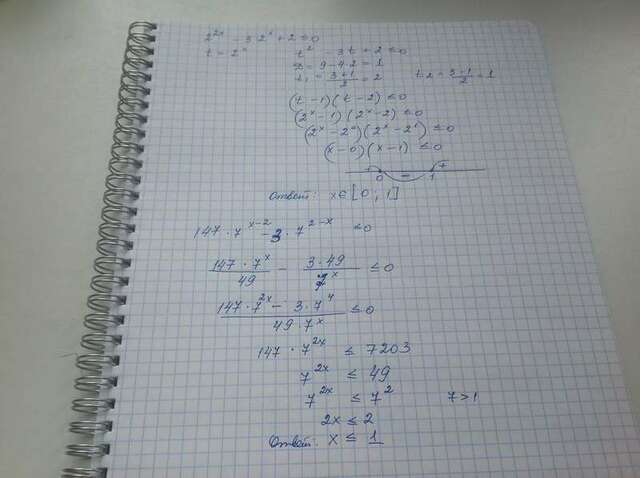 2^{2x} - 3·2^x + 2 ≤ 0
t = 2^x t^2 - 3t + 2 ≤ 0
D = 9 - 4·2 = 1
t_1 = \frac{3+1}{2} = 2 t_2 = \frac{3-1}{2} = 1
(t - 1)(t - 2) ≤ 0
(2^x - 1)(2^x - 2) ≤ 0
(2^x - 2^0)(2^x - 2^1) ≤ 0
(x - 0)(x - 1) ≤ 0
+ - +
0 1
Ответ: x ∈ [0; 1]
147·7^{x-2} - 3·7^{2-x} ≤ 0
\frac{147·7^x}{49} - \frac{3·49}{7^x} ≤ 0
\frac{147·7^{2x} - 3·7^4}{49·7^x} ≤ 0
147·7^{2x} ≤ 7203
7^{2x} ≤ 49
7^{2x} ≤ 7^2 7 > 1
2x ≤ 2
Ответ: x ≤ 1